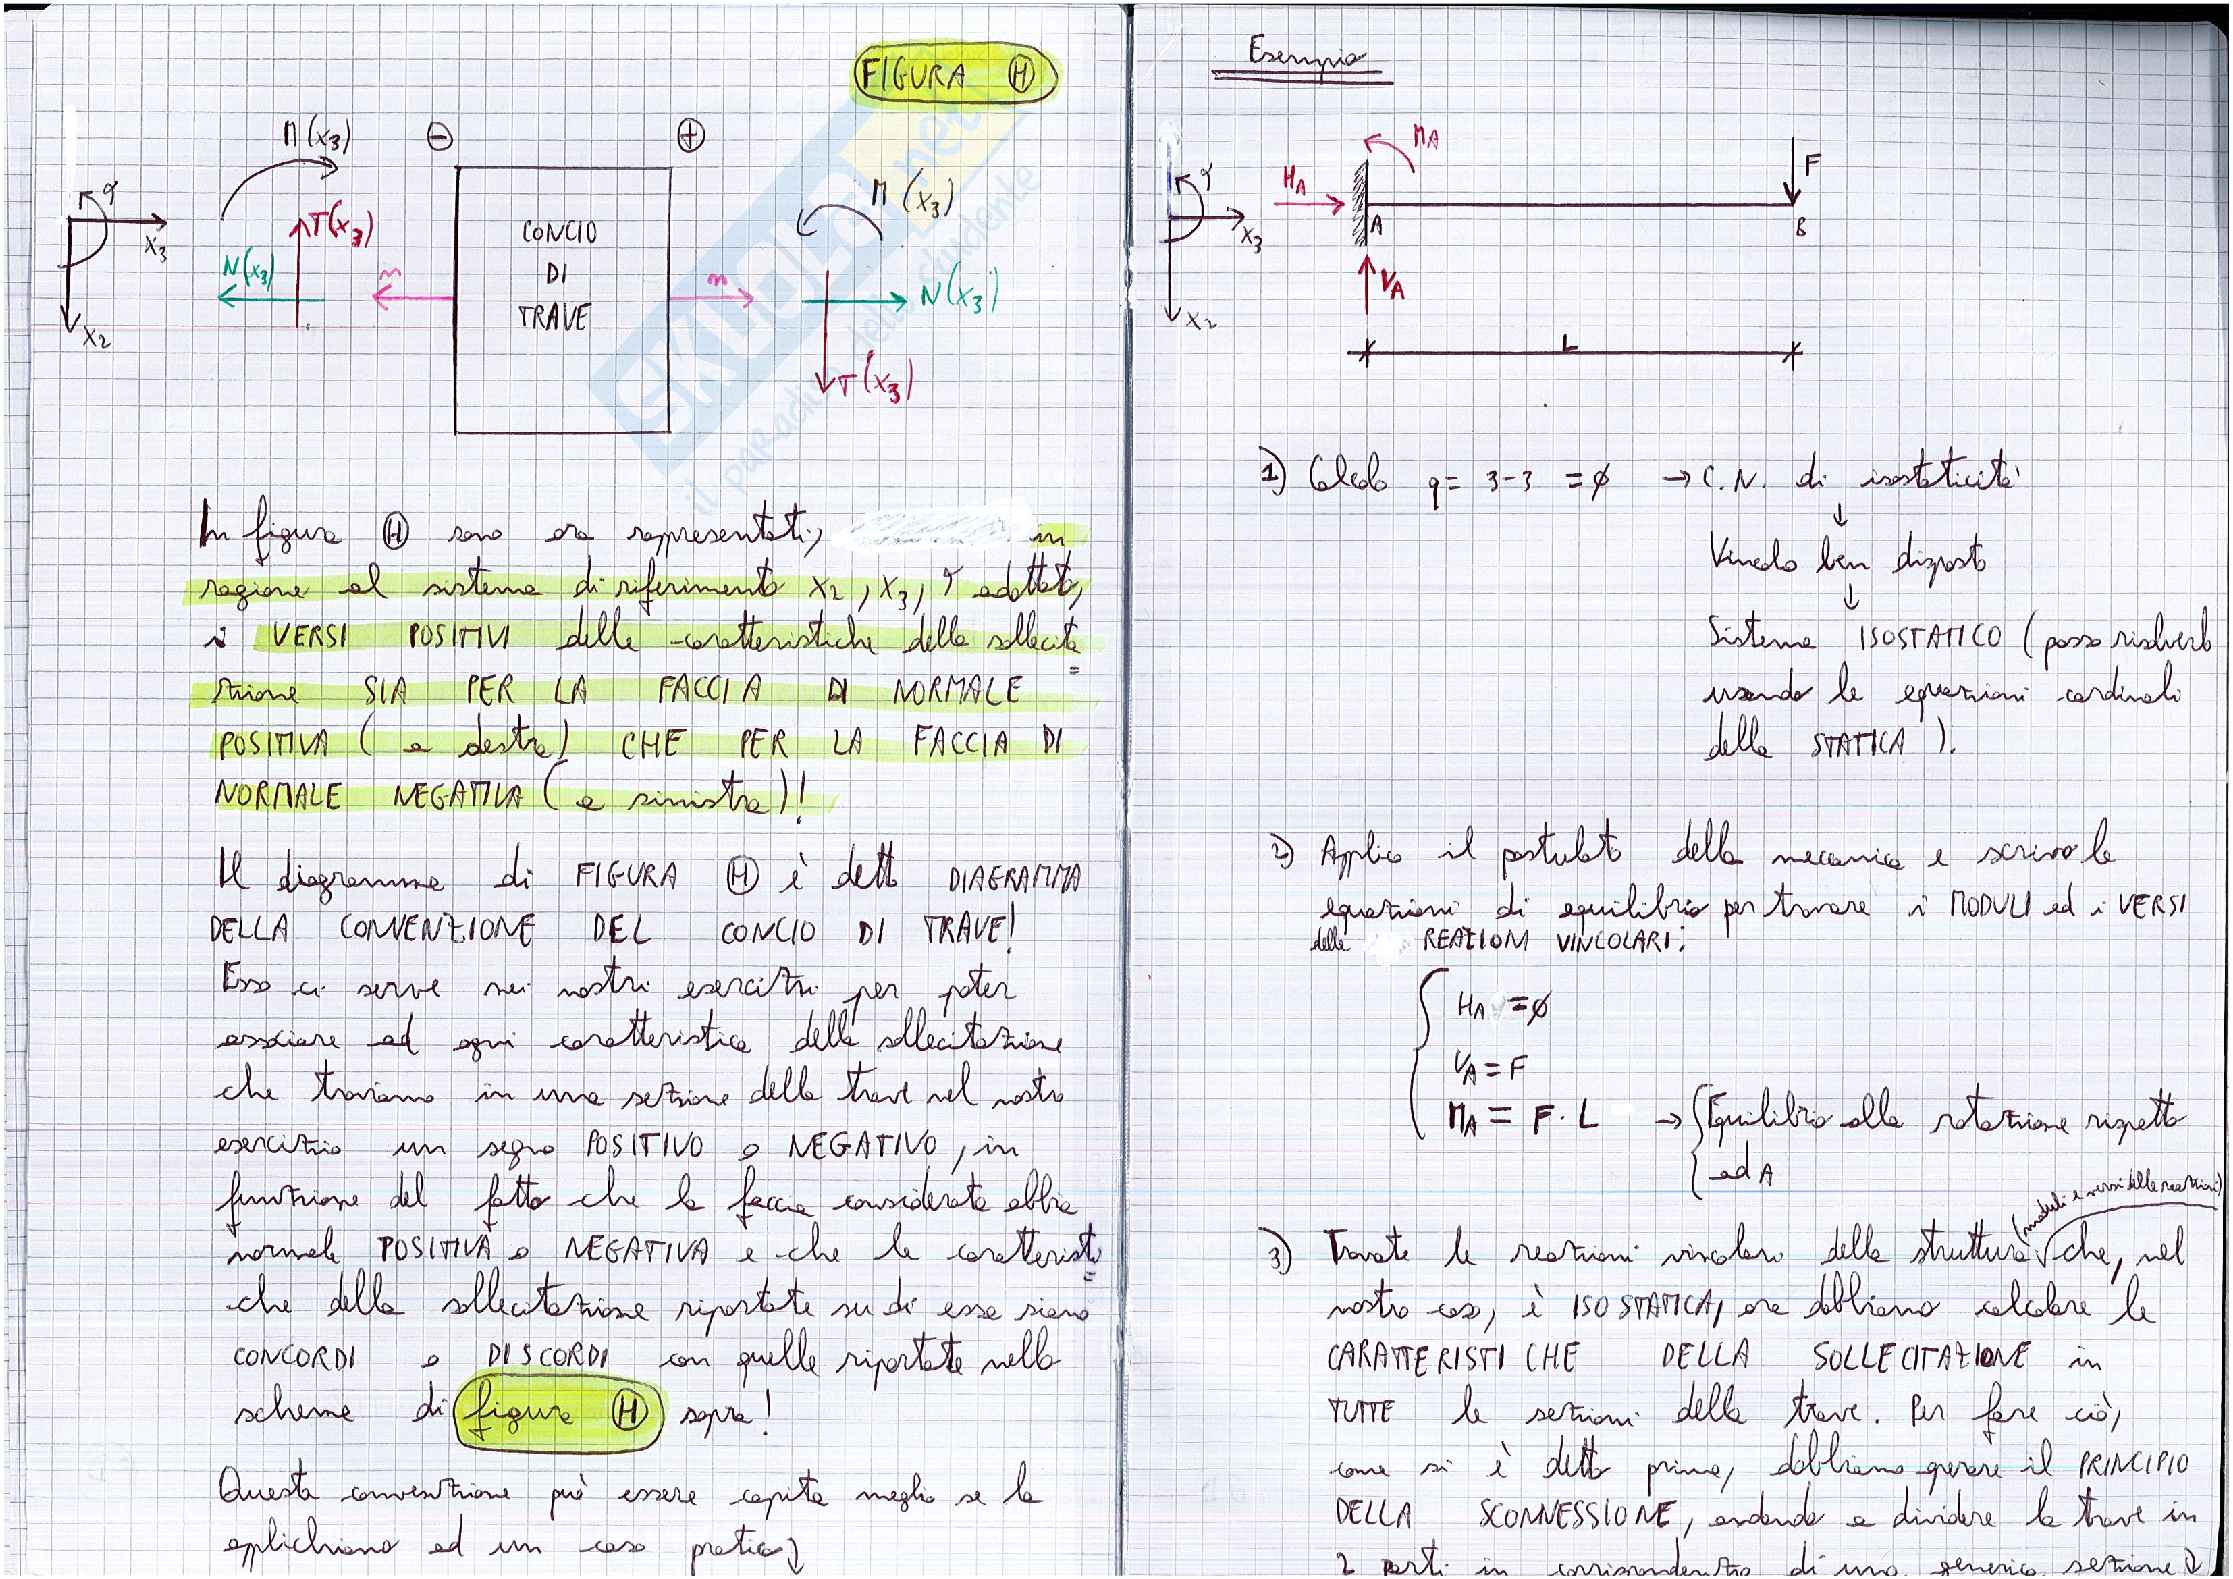 FIGURA H
M(x3)
⊖
⊕
φ
x3
x2
N(x3)
T(x3)
n
CONCIO
DI
TRAVE
n
M(x3)
N(x3)
T(x3)
SKUOLA.net
il paradiso dello studente
In figura H sono ora rappresentati, in
ragione al sistema di riferimento x2, x3, φ adottato,
i VERSI POSITIVI delle caratteristiche della sollecita=
zione SIA PER LA FACCIA DI NORMALE
POSITIVA (a destra) CHE PER LA FACCIA DI
NORMALE NEGATIVA (a sinistra)!
Il diagramma di FIGURA H è detto DIAGRAMMA
DELLA CONVENZIONE DEL CONCIO DI TRAVE!
Esso ci serve nei nostri esercizi per poter
associare ad ogni caratteristica della sollecitazione
che troviamo in una sezione della trave nel nostro
esercizio un segno POSITIVO o NEGATIVO, in
funzione del fatto che la faccia considerata abbia
normale POSITIVA o NEGATIVA e che le caratteristi=
che della sollecitazione riportate su di essa siano
CONCORDI o DISCORDI con quelle riportate nello
schema di figura H sopra!
Questa convenzione può essere capita meglio se la
applichiamo ad un caso pratico↓
Esempio
φ
x3
x2
HA
MA
A
VA
F
B
L
1) Calcolo q = 3-3 = ∅ → C.N. di isostaticità
↓
Vincolo ben disposto
↓
Sistema ISOSTATICO (posso risolverlo
usando le equazioni cardinali
della STATICA).
2) Applico il postulato della meccanica e scrivo le
equazioni di equilibrio per trovare i MODULI ed i VERSI
delle REAZIONI VINCOLARI:
HA = ∅
VA = F
MA = F · L → Equilibrio alla rotazione rispetto
ad A
3) Trovate le reazioni vincolari della struttura (moduli e versi delle reazioni) che, nel
nostro caso, è ISOSTATICA, ora dobbiamo calcolare le
CARATTERISTICHE DELLA SOLLECITAZIONE in
TUTTE le sezioni della trave. Per fare ciò,
come si è detto prima, dobbiamo operare il PRINCIPIO
DELLA SCONNESSIONE, andando a dividere la trave in
2 parti in corrispondenza di una generica sezione↓